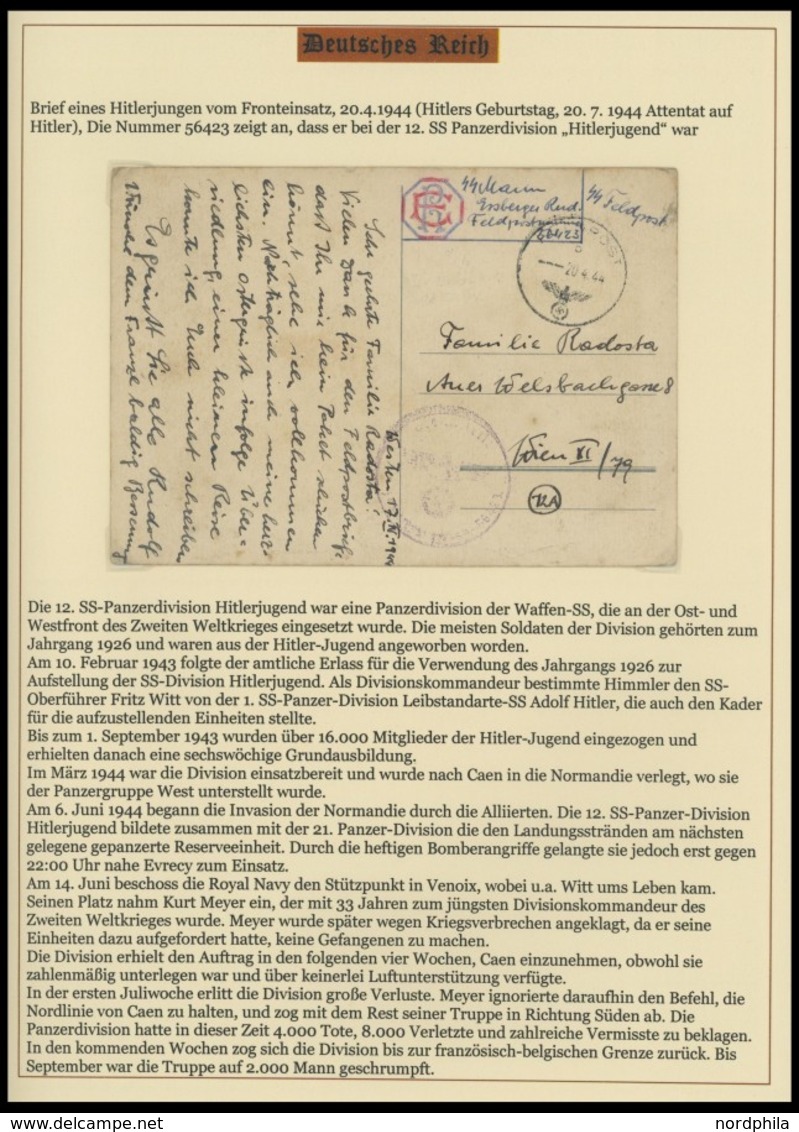 Deutsches Reich
Brief eines Hitlerjungen vom Fronteinsatz, 20.4.1944 (Hitlers Geburtstag, 20. 7. 1944 Attentat auf
Hitler), Die Nummer 56423 zeigt an, dass er bei der 12. SS Panzerdivision „Hitlerjugend“ war
SS Mann
Ersberger Rud.
Feldpostnummer
56423
SS Feldpost
20.4.44
Familie Radosta
Auer Welsbachgasse 8
Wien XI/79
12A
Westen 17.IV.1944
Sehr geehrte Familie Radosta!
Vielen Dank für den Feldpostbrief.
daß Ihr mir kein Paket schicken
könnt, sehe ich vollkommen
ein. Nachträglich auch meine herz-
lichsten Ostergrüße infolge Über-
siedlung, einer kleineren Reise
konnte ich Euch nicht schreiben
Es grüßt Sie alle Rudolf
Wünsche dem Franzl baldig Besserung
Die 12. SS-Panzerdivision Hitlerjugend war eine Panzerdivision der Waffen-SS, die an der Ost- und
Westfront des Zweiten Weltkrieges eingesetzt wurde. Die meisten Soldaten der Division gehörten zum
Jahrgang 1926 und waren aus der Hitler-Jugend angeworben worden.
Am 10. Februar 1943 folgte der amtliche Erlass für die Verwendung des Jahrgangs 1926 zur
Aufstellung der SS-Division Hitlerjugend. Als Divisionskommandeur bestimmte Himmler den SS-
Oberführer Fritz Witt von der 1. SS-Panzer-Division Leibstandarte-SS Adolf Hitler, die auch den Kader
für die aufzustellenden Einheiten stellte.
Bis zum 1. September 1943 wurden über 16.000 Mitglieder der Hitler-Jugend eingezogen und
erhielten danach eine sechswöchige Grundausbildung.
Im März 1944 war die Division einsatzbereit und wurde nach Caen in die Normandie verlegt, wo sie
der Panzergruppe West unterstellt wurde.
Am 6. Juni 1944 begann die Invasion der Normandie durch die Alliierten. Die 12. SS-Panzer-Division
Hitlerjugend bildete zusammen mit der 21. Panzer-Division die den Landungsstränden am nächsten
gelegene gepanzerte Reserveeinheit. Durch die heftigen Bomberangriffe gelangte sie jedoch erst gegen
22:00 Uhr nahe Evrecy zum Einsatz.
Am 14. Juni beschoss die Royal Navy den Stützpunkt in Venoix, wobei u.a. Witt ums Leben kam.
Seinen Platz nahm Kurt Meyer ein, der mit 33 Jahren zum jüngsten Divisionskommandeur des
Zweiten Weltkrieges wurde. Meyer wurde später wegen Kriegsverbrechen angeklagt, da er seine
Einheiten dazu aufgefordert hatte, keine Gefangenen zu machen.
Die Division erhielt den Auftrag in den folgenden vier Wochen, Caen einzunehmen, obwohl sie
zahlenmäßig unterlegen war und über keinerlei Luftunterstützung verfügte.
In der ersten Juliwoche erlitt die Division große Verluste. Meyer ignorierte daraufhin den Befehl, die
Nordlinie von Caen zu halten, und zog mit dem Rest seiner Truppe in Richtung Süden ab. Die
Panzerdivision hatte in dieser Zeit 4.000 Tote, 8.000 Verletzte und zahlreiche Vermisste zu beklagen.
In den kommenden Wochen zog sich die Division bis zur französisch-belgischen Grenze zurück. Bis
September war die Truppe auf 2.000 Mann geschrumpft.
nordphila